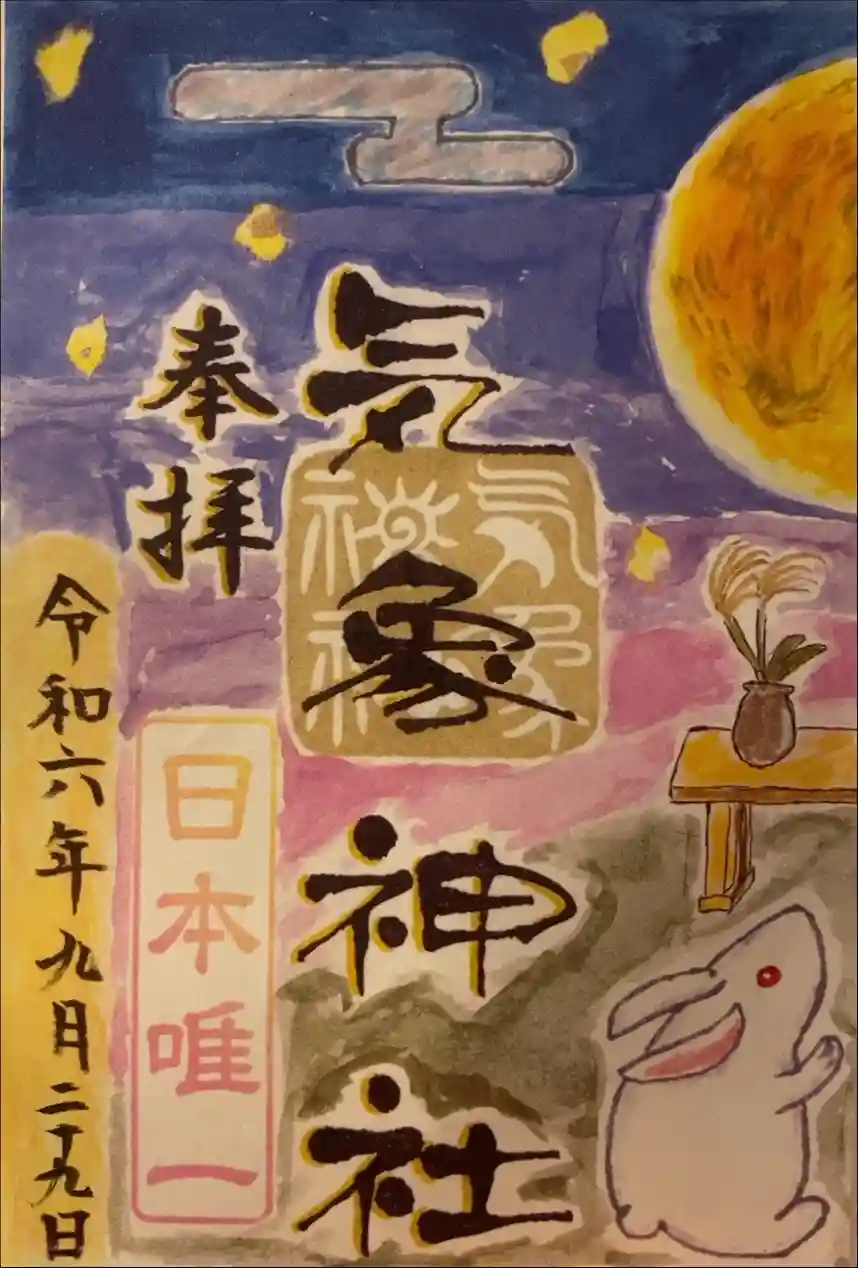 気象神社
気象
神社
奉拝
日本唯一
令和六年九月二十九日